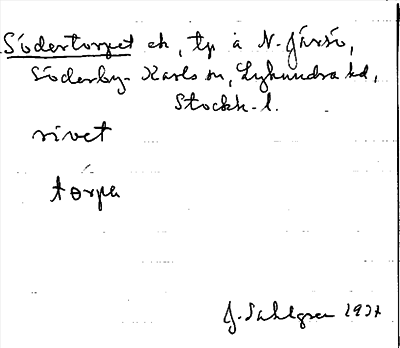 Södertorpet ek, tp å N. Järsö,
Söderby-Karls sn, Lyhundra hd,
Stockh. l.
rivet
tørpa
J. Sahlgren 1937